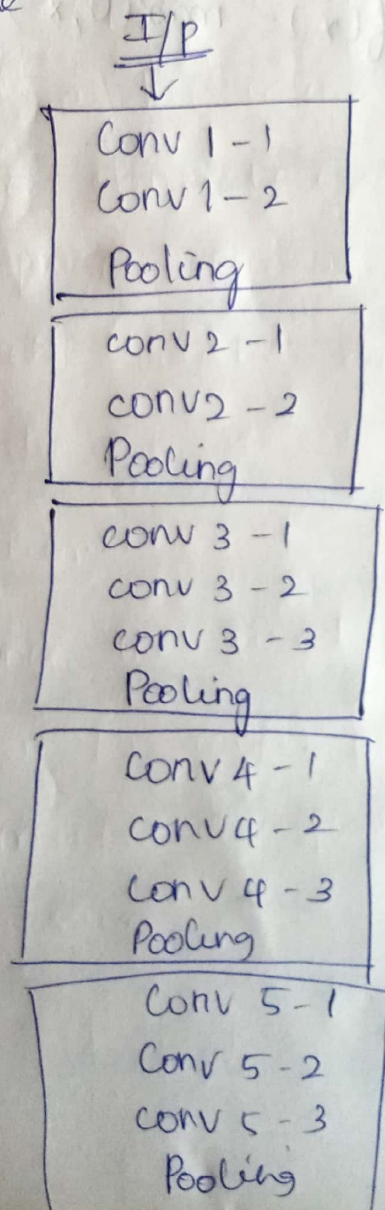 I/P
Conv 1-1
Conv 1-2
Pooling
conv 2-1
conv2-2
Pooling
conv 3-1
conv 3-2
conv 3-3
Pooling
Conv 4-1
conv4-2
Conv 4-3
Pooling
Conv 5-1
Conv 5-2
conv 5-3
Pooling